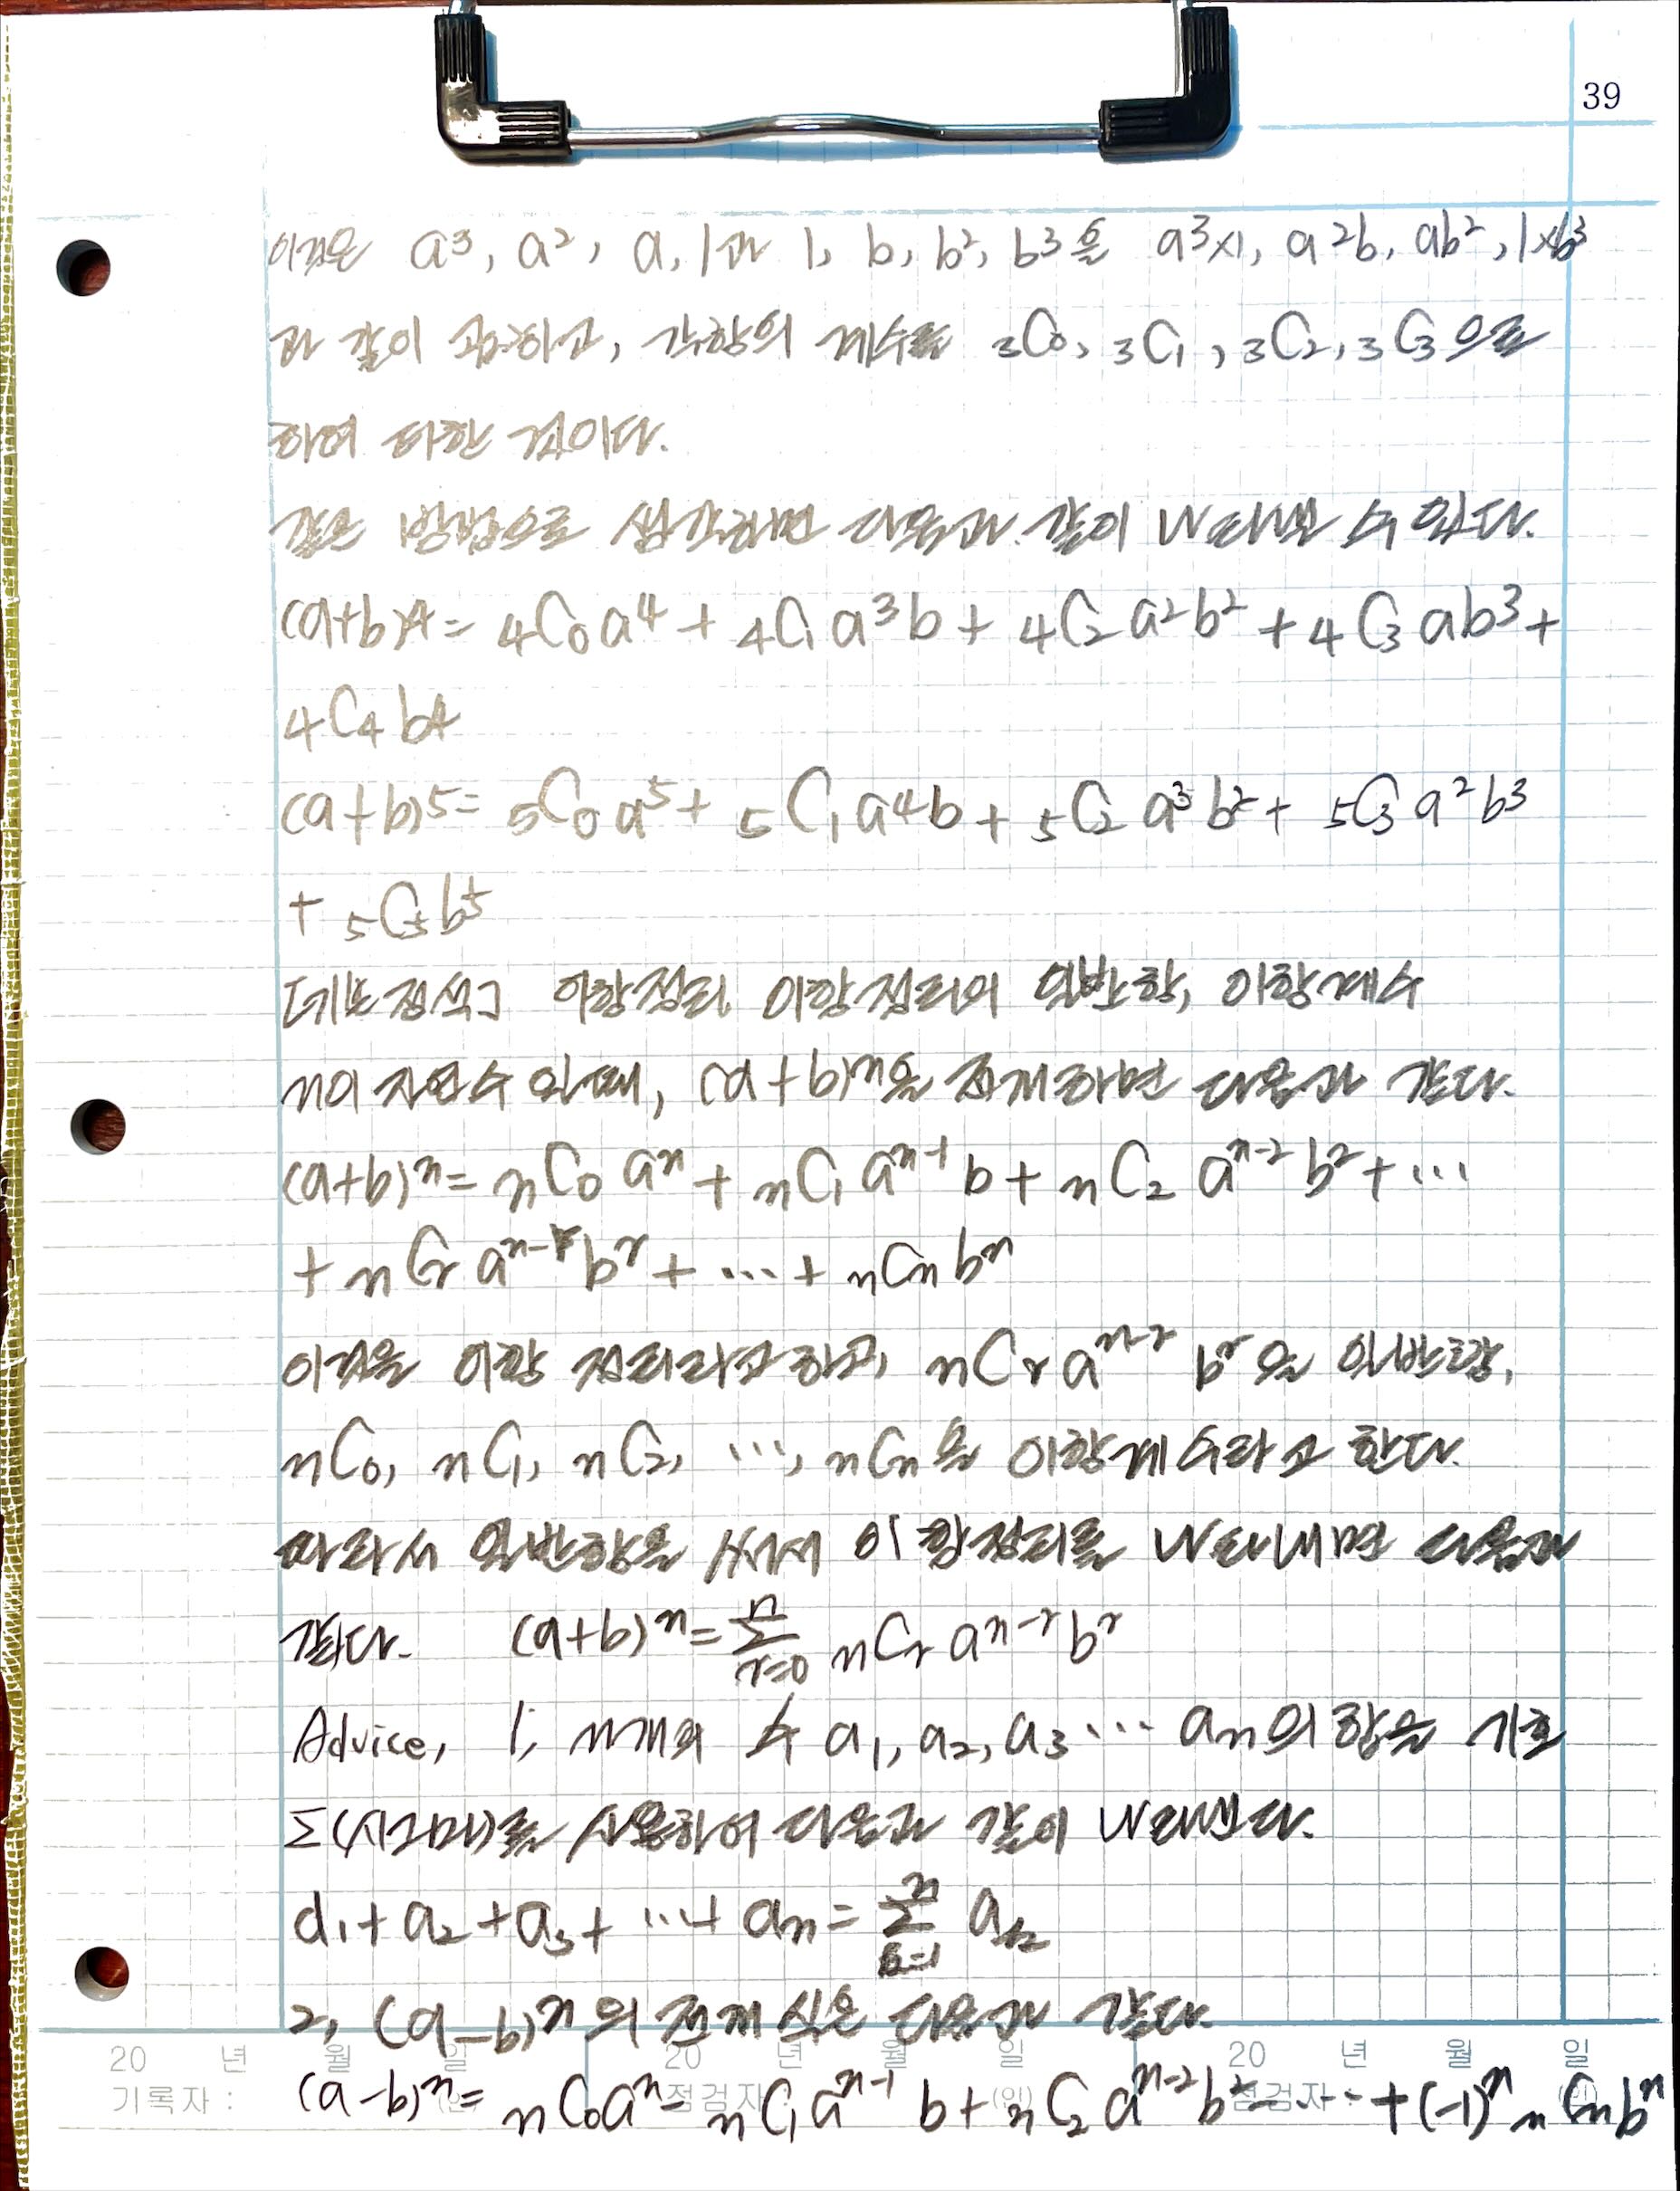 39
이것은 a³, a², a, 1과 1, b, b², b³을 a³×1, a²b, ab², 1×b³
과 같이 곱하고, 각 항의 계수를 ₃C₀, ₃C₁, ₃C₂, ₃C₃으로
하여 더한 것이다.
같은 방법으로 생각하면 다음과 같이 나타낼 수 있다.
(a+b)⁴= ₄C₀a⁴ + ₄C₁a³b + ₄C₂a²b² + ₄C₃ab³ +
₄C₄b⁴
(a+b)⁵= ₅C₀a⁵ + ₅C₁a⁴b + ₅C₂a³b² + ₅C₃a²b³
+ ₅C₅b⁵
[기본정석] 이항정리, 이항정리의 일반항, 이항계수
n이 자연수일 때, (a+b)ⁿ을 전개하면 다음과 같다.
(a+b)ⁿ= ₙC₀aⁿ + ₙC₁aⁿ⁻¹b + ₙC₂aⁿ⁻²b² + ⋯
+ ₙCᵣaⁿ⁻ʳbʳ + ⋯ + ₙCₙbⁿ
이것을 이항 정리라고 하고, ₙCᵣaⁿ⁻ʳbʳ을 일반항,
ₙC₀, ₙC₁, ₙC₂, ⋯, ₙCₙ을 이항계수라고 한다.
따라서 일반항을 써서 이항정리를 나타내면 다음과
같다. (a+b)ⁿ= n∑r=0 ₙCᵣaⁿ⁻ʳbʳ
Advice, 1, n개의 수 a₁, a₂, a₃ ⋯ aₙ의 합을 기호
Σ(시그마)를 사용하여 다음과 같이 나타낸다.
a₁+a₂+a₃+ ⋯ + aₙ = n∑k=1 aₖ
2, (a-b)ⁿ의 전개식은 다음과 같다.
20 년 월 일 20 년 월 일 20 년 월 일
기록자 : (인) 점검자 : (인) 점검자 : (인)
(a-b)ⁿ= ₙC₀aⁿ - ₙC₁aⁿ⁻¹b + ₙC₂aⁿ⁻²b² - ⋯ + (-1)ⁿ ₙCₙbⁿ